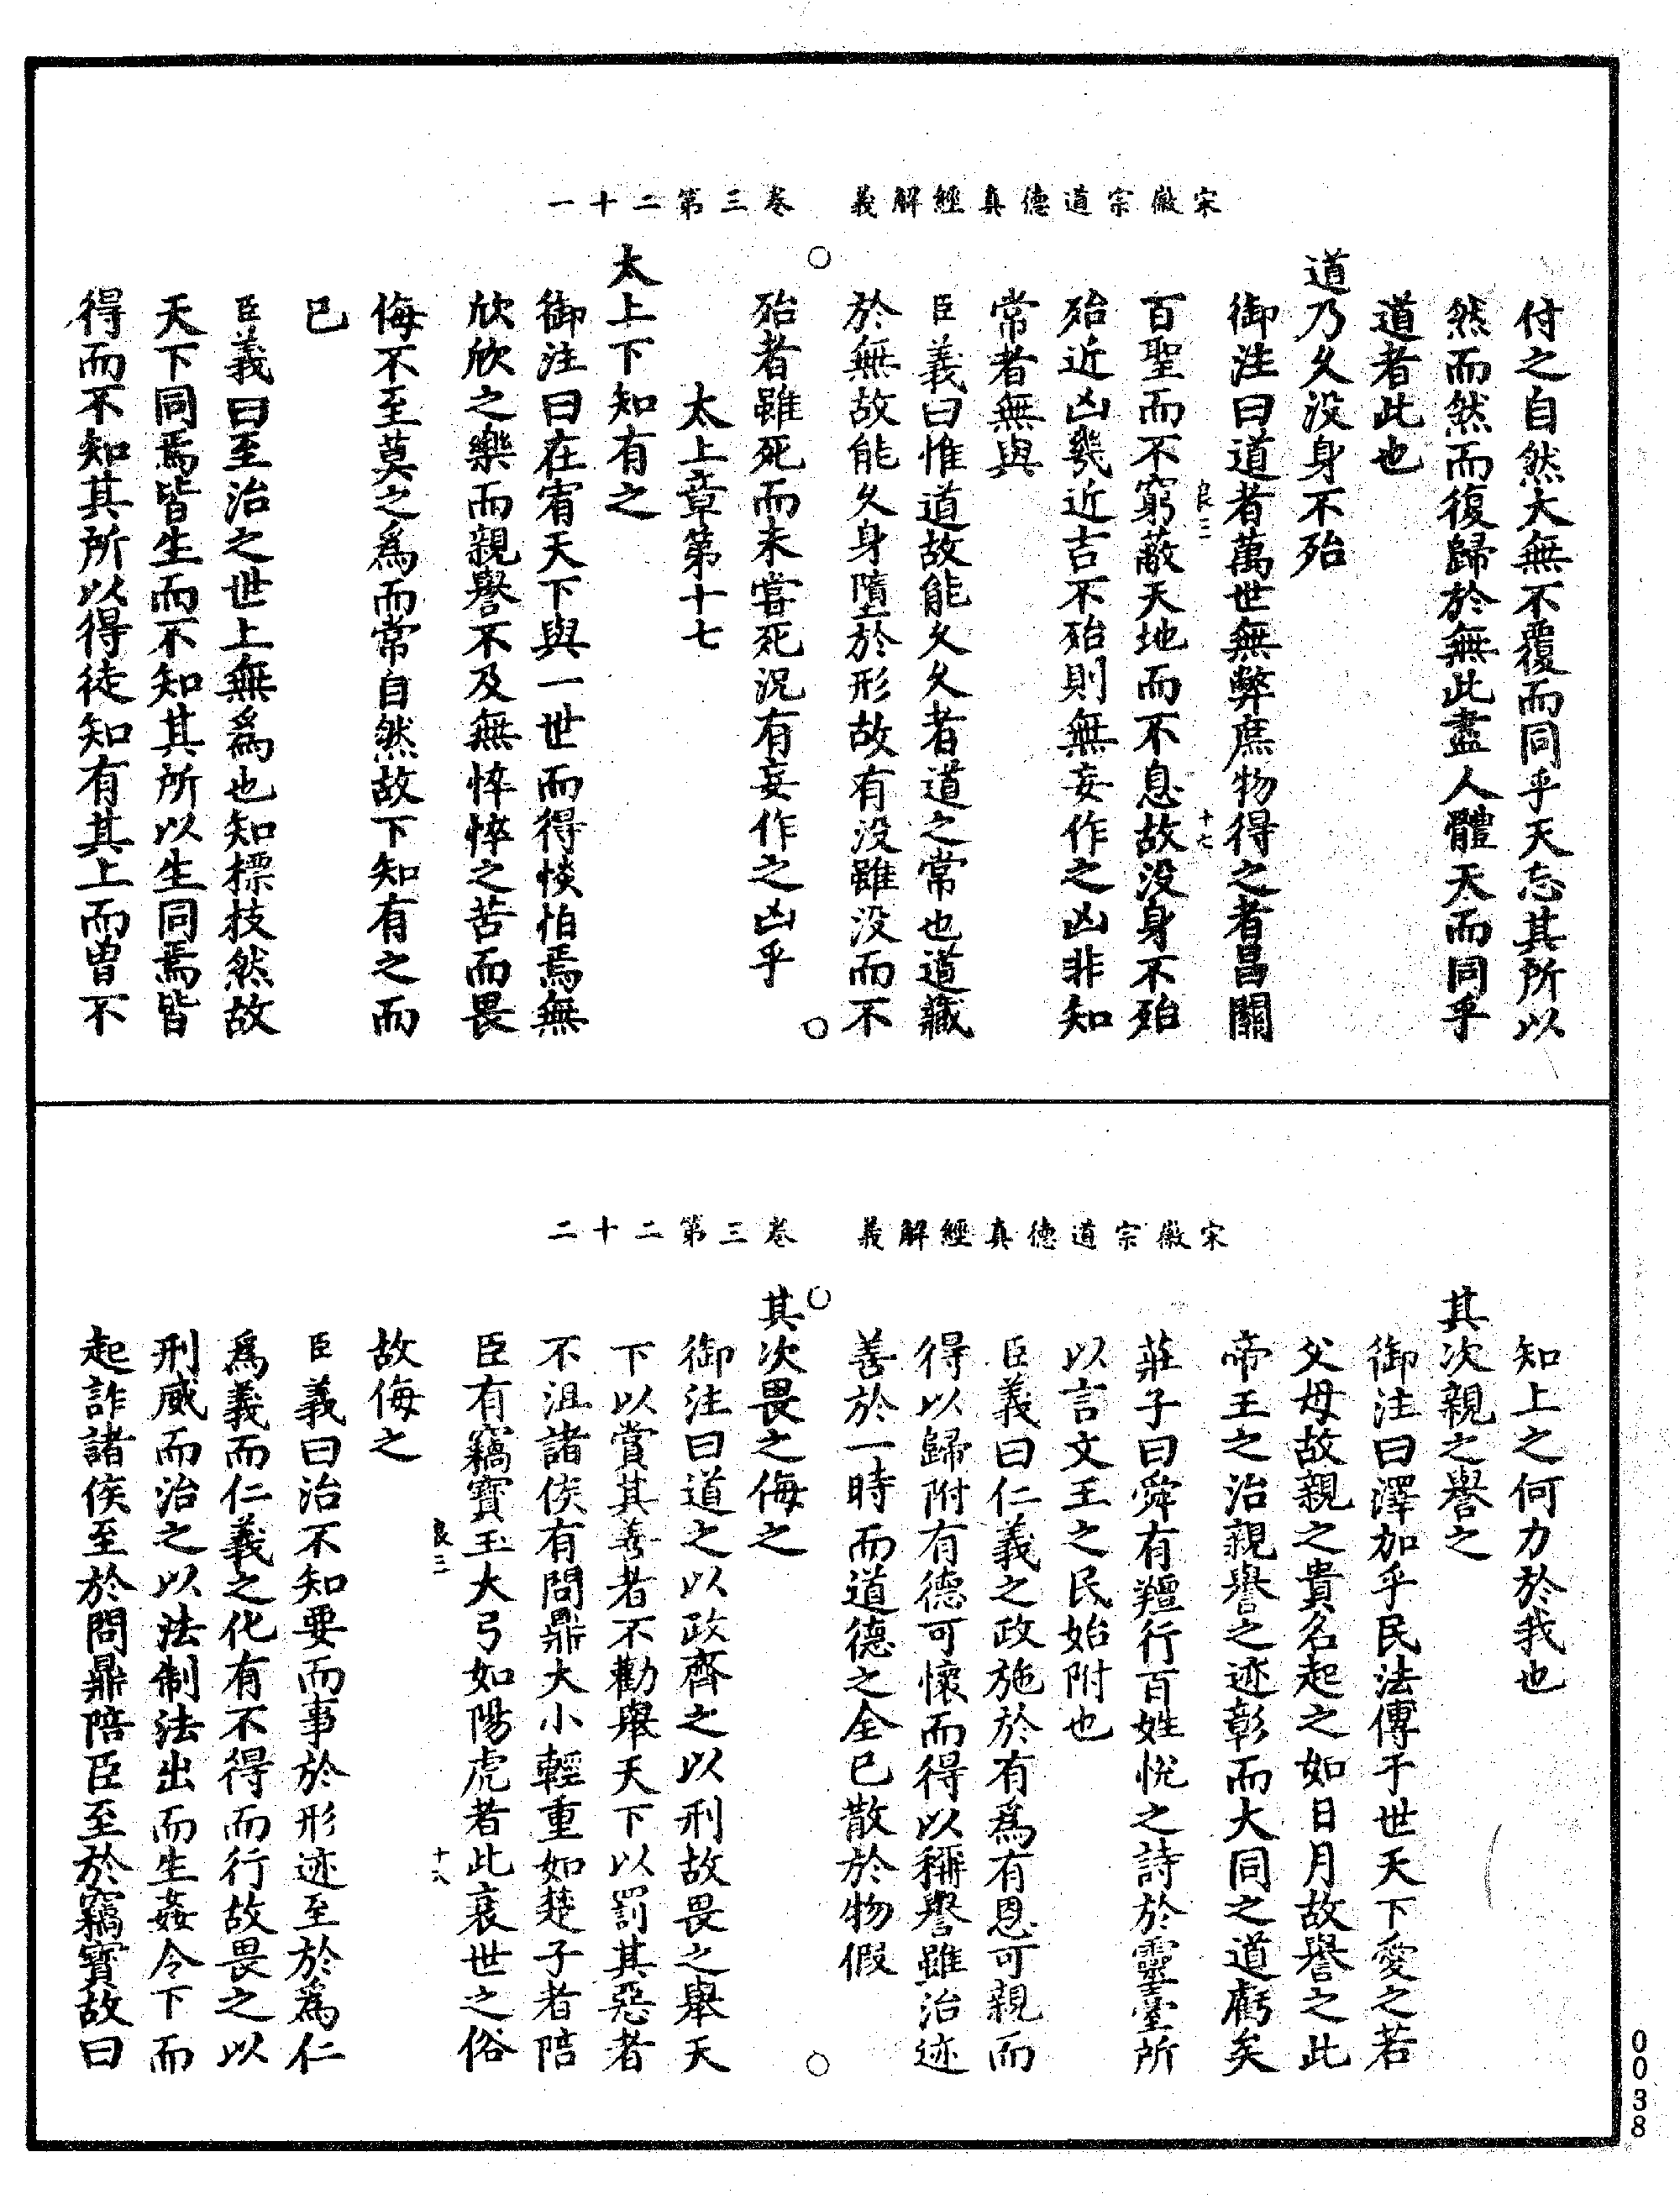 宋徽宗道德真經解義　卷三第二十一
付之自然大無不覆而同乎天忘其所以
然而然而復歸於無此盡人體天而同乎
道者此也
道乃久没身不殆
御注曰道者萬世無弊庶物得之者昌關
良三　十七
百聖而不窮蔽天地而不息故没身不殆
殆近凶幾近吉不殆則無妄作之凶非知
常者無與
臣義曰惟道故能久久者道之常也道藏
於無故能久身墮於形故有没雖没而不
殆者雖死而未嘗死況有妄作之凶乎
太上章第十七
太上下知有之
御注曰在宥天下與一世而得惔怕焉無
欣欣之樂而親譽不及無悴悴之苦而畏
侮不至莫之爲而常自然故下知有之而
已
臣義曰至治之世上無爲也知標技然故
天下同焉皆生而不知其所以生同焉皆
得而不知其所以得徒知有其上而曾不
宋徽宗道德真經解義　卷三第二十二
知上之何力於我也
其次親之譽之
御注曰澤加乎民法傳于世天下愛之若
父母故親之貴名起之如日月故譽之此
帝王之治親譽之迹彰而大同之道虧矣
莊子曰舜有羶行百姓悅之詩於靈臺所
以言文王之民始附也
臣義曰仁義之政施於有爲有恩可親而
得以歸附有德可懷而得以稱譽雖治迹
善於一時而道德之全已散於物假
其次畏之侮之
御注曰道之以政齊之以刑故畏之舉天
下以賞其善者不勸舉天下以罰其惡者
不沮諸侯有問鼎大小輕重如楚子者陪
臣有竊寶玉大弓如陽虎者此衰世之俗
良三　十八
故侮之
臣義曰治不知要而事於形迹至於爲仁
爲義而仁義之化有不得而行故畏之以
刑威而治之以法制法出而生姦令下而
起詐諸侯至於問鼎陪臣至於竊寶故曰
0038